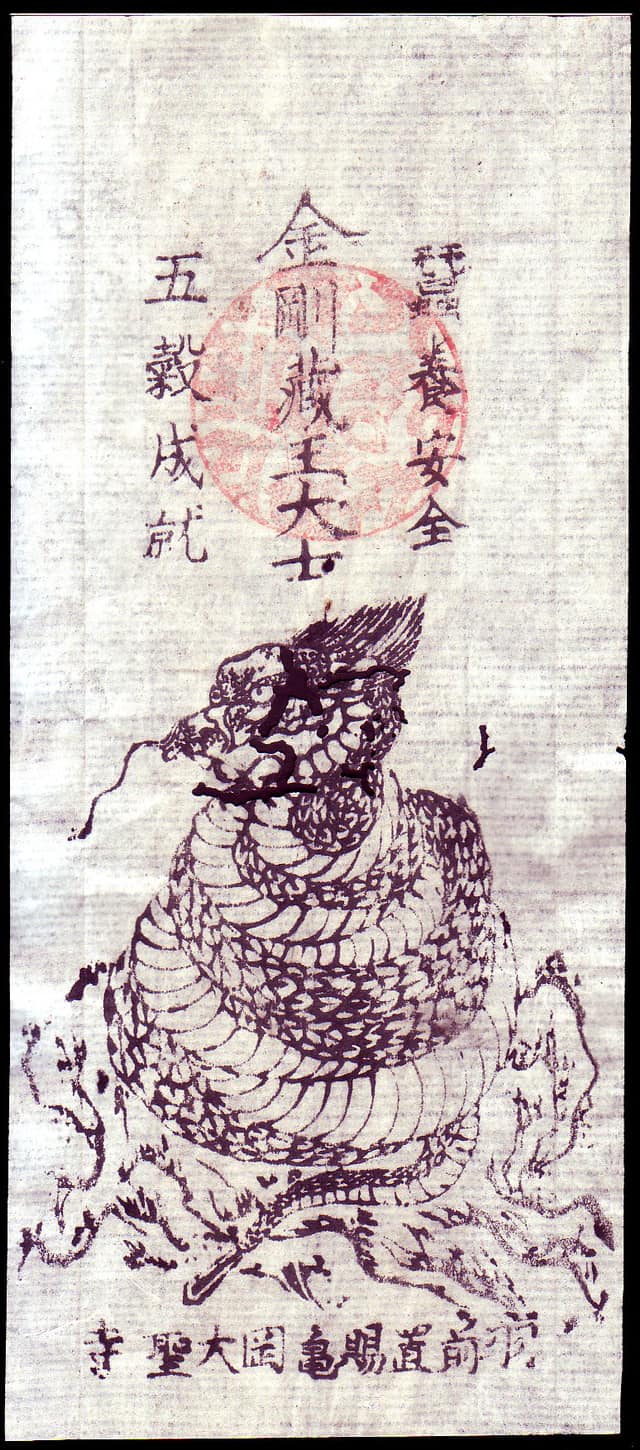 蠶養安全
金剛藏王大士
五穀成就
羽前置賜亀岡大聖寺